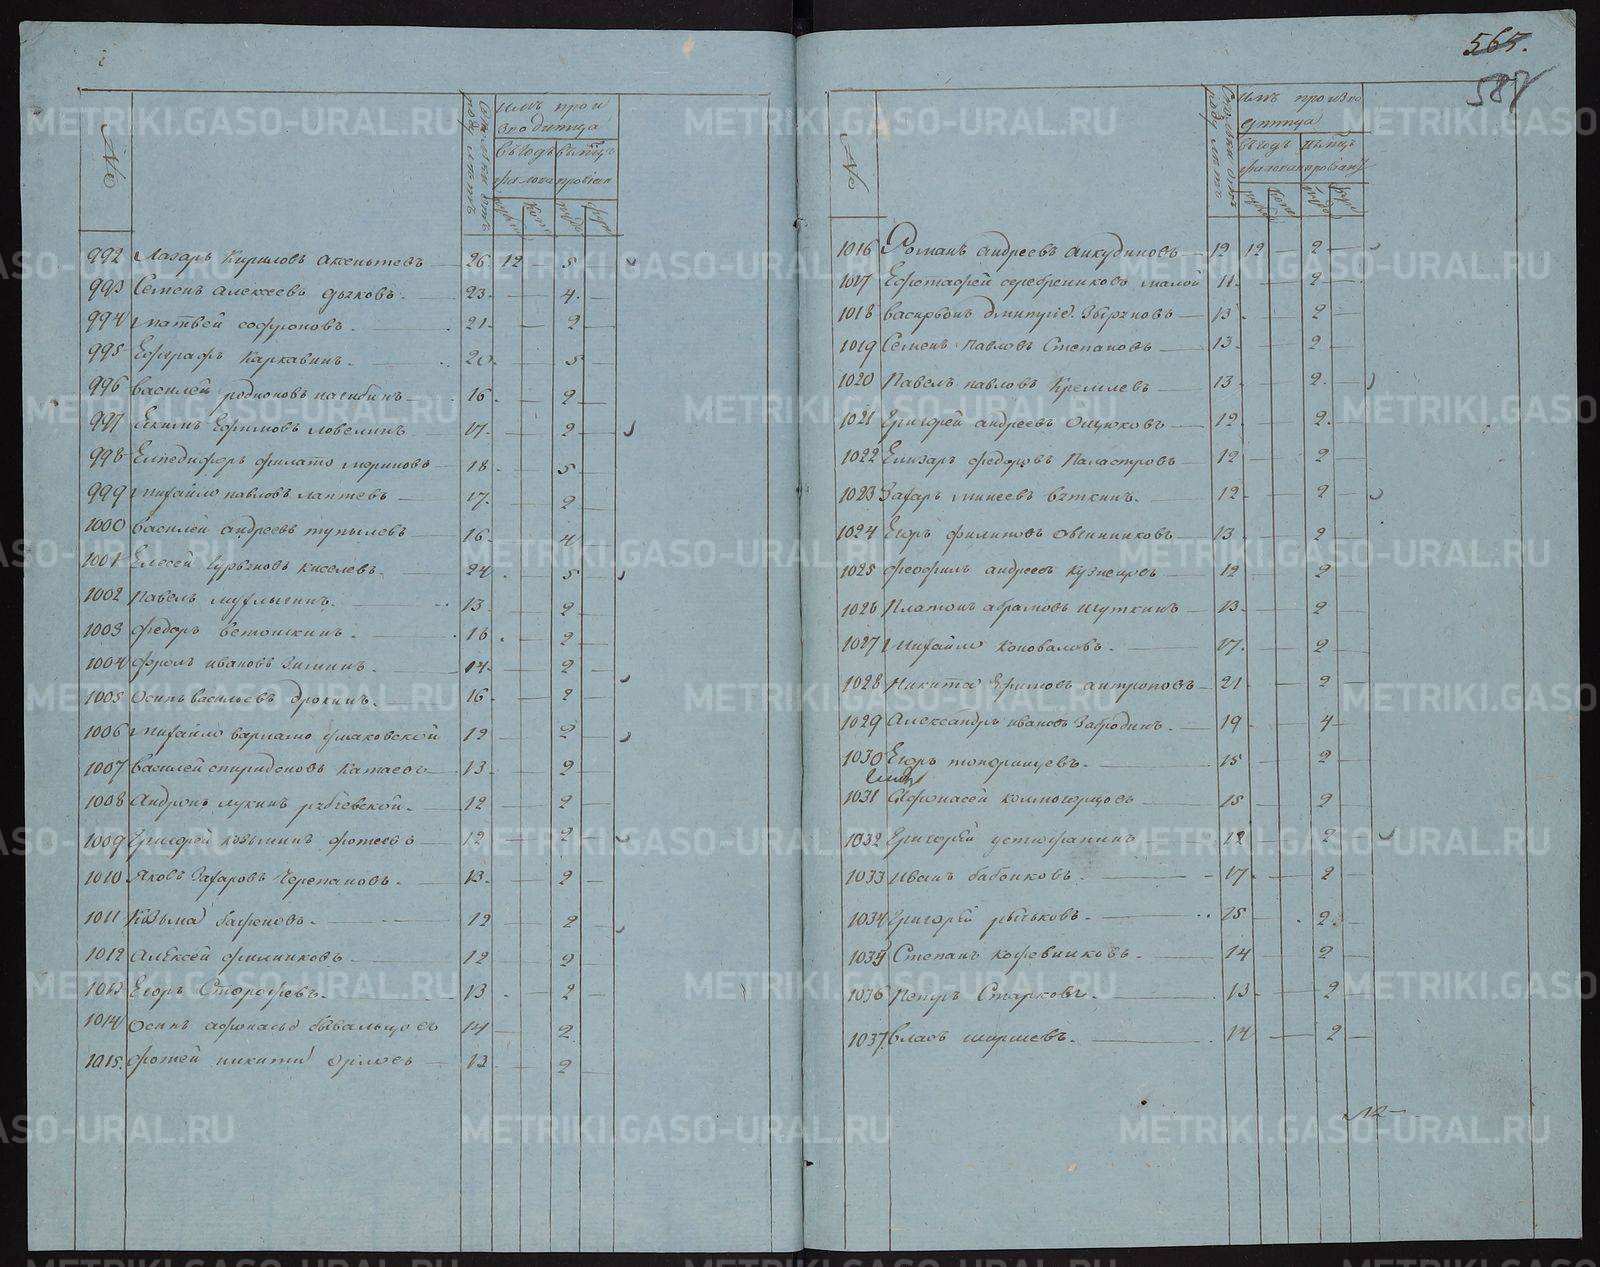 565.
588
№
Сколько отъ роду лѣтъ
имъ прои
зводитца
въ годъ въ мѣцъ
жалова провіан
рубли
коп
пуд
фун
992 Лазарь Кириловъ Аксентьевъ 26 12 5
993 Семенъ Алексеевъ Дьтковъ 23 4
994 Матвей Софроновъ 21 2
995 Евграфъ Каркавинъ 20 5
996 Василей Родионовъ Пагибинъ 16 2
997 Екимъ Ефимовъ Ловелинъ 17 2
998 Елпедифоръ Филато Мориновъ 18 5
999 Михайло Павловъ Лаптевъ 17 2
1000 Василей Андреевъ Тупылевъ 16 4
1001 Елесей Гурьяновъ Киселевъ 24 5
1002 Павелъ Муглыгинъ 13 2
1003 Федоръ Ветошкинъ 16 2
1004 Фролъ Ивановъ Зиминъ 14 2
1005 Осипъ Васильевъ Ерокинъ 16 2
1006 Михайло Варламо Ушаковской 12 2
1007 Василей Спиридоновъ Катаевъ 13 2
1008 Андронъ Лукинъ Рябчевской 12 2
1009 Григорей Козьминъ Фотеевъ 12 2
1010 Яковъ Захаровъ Черепановъ 13 2
1011 Козьма Баженовъ 12 2
1012 Алексей Филинковъ 12 2
1013 Егоръ Сторожевъ 13 2
1014 Осипъ Афонасье Бывальцовъ 14 2
1015 Фотей Никити Орловъ 13 2
№
Сколько отъ роду лѣтъ
имъ произво
дитца
въ годъ въ мѣцъ
жалован провіанту
рубли
копе
пудо
фун
1016 Романъ Андреевъ Анкудиновъ 12 12 2
1017 Ефстафей Серебрениковъ малой 11 2
1018 Васирьянъ Дмитрие. Зыряновъ 13 2
1019 Семенъ Павловъ Степановъ 13 2
1020 Павелъ Павловъ Кремлевъ 13 2
1021 Григорей Андреевъ Ощюковъ 12 2
1022 Елизаръ Федоровъ Паластровъ 12 2
1023 Захаръ Минеевъ Вяткинъ 12 2
1024 Егоръ Филиповъ Овчинниковъ 13 2
1025 Феофилъ Андреевъ Кузнецовъ 12 2
1026 Платонъ Абрамовъ Шуткинъ 13 2
1027 Михайло Коноваловъ 17 2
1028 Никита Ефимовъ Антроповъ 21 2
1029 Александръ Ивановъ Загродинъ 19 4
1030 Егоръ Топорищевъ 15 2
1031 Афонасей Колмогорцовъ 15 2
1032 Григорей Устюжанинъ 12 2
1033 Иванъ Бабенковъ 17 2
1034 Григорей Рыльковъ 25 2
1035 Степанъ Кожевниковъ 14 2
1036 Петръ Старковъ 13 2
1037 Власъ Ширшевъ 14 2